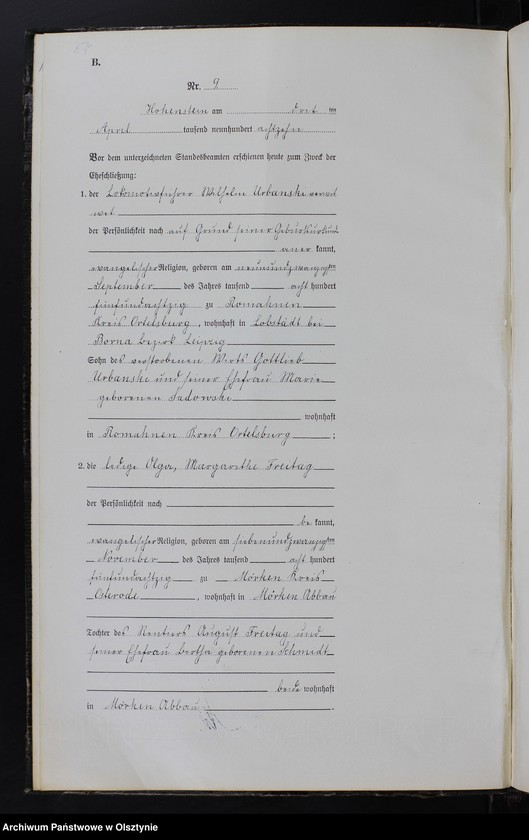 B.
Nr. 9
Hohenstein am drei ten
April tausend neunhundert achtzehn
Vor dem unterzeichneten Standesbeamten erschienen heute zum Zweck der
Eheschließung:
1. der Lokomotivführer Wilhelm Urbanski verwit
wet
der Persönlichkeit nach auf Grund seiner Geburtsurkunde
aner kannt,
evangelischer Religion, geboren am neunundzwanzigsten
September des Jahres tausend acht hundert
fünfundachtzig zu Romahnen
Kreis Ortelsburg, wohnhaft in Lobstädt bei
Borna Bezirk Leipzig
Sohn des verstorbenen Wirts Gottlieb
Urbanski und seiner Ehefrau Marie
geborenen Sadowski
wohnhaft
in Romahnen Kreis Ortelsburg ;
2. die ledige Olga, Margarethe Freitag
der Persönlichkeit nach
be kannt,
evangelischer Religion, geboren am siebenundzwanzigsten
November des Jahres tausend acht hundert
fünfundachtzig zu Mörken Kreis
Osterode , wohnhaft in Mörken Abbau
Tochter des Rentiers August Freitag und
seiner Ehefrau Bertha geborenen Schmidt
beide wohnhaft
in Mörken Abbau .
Archiwum Państwowe w Olsztynie